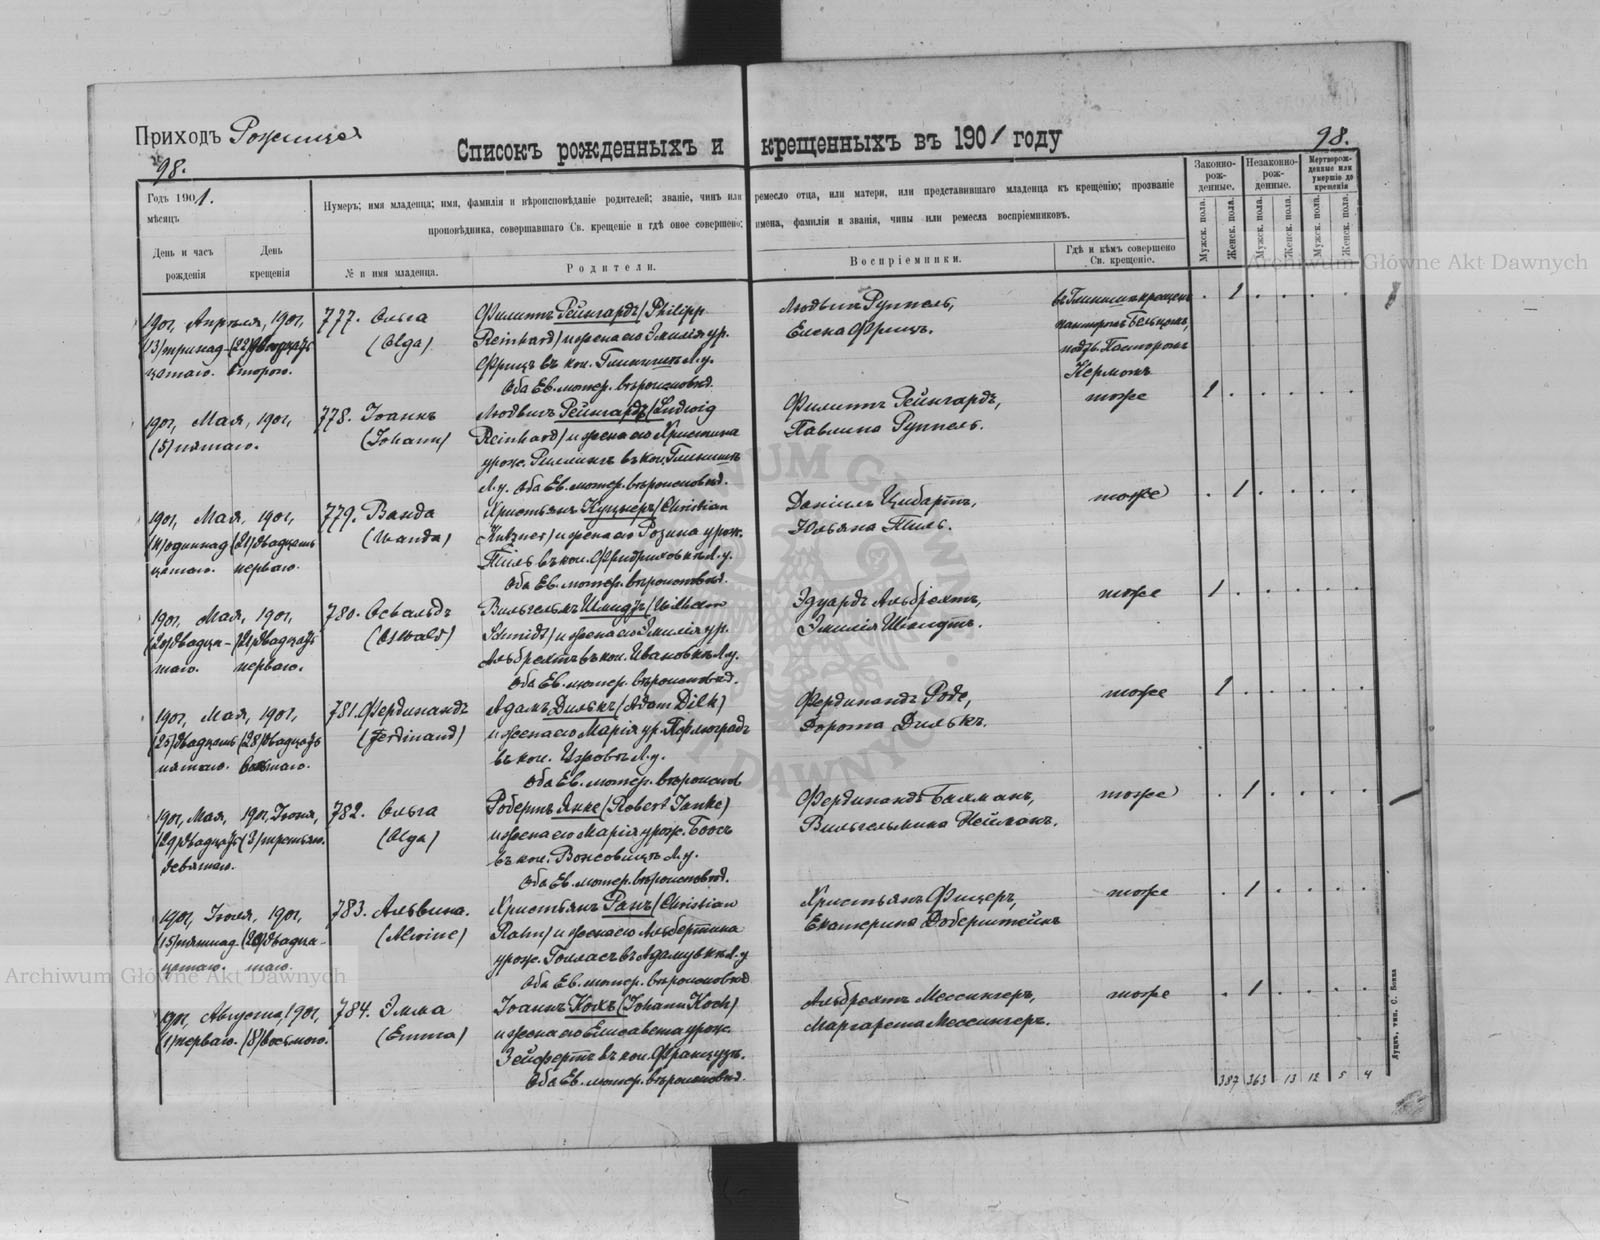 Приходъ Рожище
Списокъ рожденныхъ и крещенныхъ въ 1901 году
98.
98.
Годъ 1901.
мѣсяцъ
День и часъ рожденія
День крещенія
Нумеръ; имя младенца; имя, фамилія и вѣроисповѣданіе родителей; званіе, чинъ или ремесло отца, или матери, или представившаго младенца къ крещенію; прозваніе
проповѣдника, совершавшаго Св. крещеніе и гдѣ оное совершено; имена, фамиліи и званія, чины или ремесла воспріемниковъ.
№ и имя младенца.
Родители.
Воспріемники.
Гдѣ и кѣмъ совершено Св. крещеніе.
Законно-рож-денные.
Незаконно-рож-денные.
Мертворож-денные или умершіе до крещенія
Мужск. пола.
Женск. пола.
Мужск. пола.
Женск. пола.
Мужск. пола.
Женск. пола.
1901, Апрѣля, 1901,
(13) тринад- (22) двадцать
цатаго. второго.
777. Ольга
(Olga)
Филиппъ Рейнгардъ (Philipp
Reinhard) и жена его Эмилія ур.
Фрицъ въ кол.
Оба Ев. лютер. вѣроисповѣд.
Людвигъ Руппель,
Елена Фрицъ.
1
1901, Мая, 1901,
(5) пятаго.
778. Іоаннъ
(Johann)
Людвигъ Рейнгардъ (Ludwig
Reinhard) и жена его Христина
урож. въ кол.
Л. у. Оба Ев. лютер. вѣроисповѣд.
Филиппъ Рейнгардъ,
Павлина Руппель.
тоже
1
1901, Мая, 1901,
(11) одиннад- (21) двадцать
цатаго. перваго.
779. Ванда
(Wanda)
Христьянъ Куцнеръ (Christian
Kutzner) и жена его Розина урож.
Тиль въ кол. Фридриховкѣ Л. у.
Оба Ев. лютер. вѣроисповѣд.
Даніилъ Цибартъ,
Юльяна Тиль.
тоже
1
1901, Мая, 1901,
(20) двадца- (21) двадцать
таго. перваго.
780. Освальдъ
(Oswald)
Вильгельмъ Шмидтъ (Wilhelm
Schmidt) и жена его Эмилія ур.
Альбрехтъ въ кол. Ивановкѣ Л. у.
Оба Ев. лютер. вѣроисповѣд.
Эдуардъ Альбрехтъ,
Эмилія Шмидтъ.
тоже
1
1901, Мая, 1901,
(25) двадцать (28) двадцать
пятаго. восьмаго.
781. Фердинандъ
(Ferdinand)
Адамъ Дилькъ (Adam Dilk)
и жена его Марія ур.
въ кол. Л. у.
Оба Ев. лютер. вѣроисповѣд.
Фердинандъ Роде,
Дорота Дилькъ.
тоже
1
1901, Мая, 1901, Іюня,
(29) двадцать (3) третьяго.
девятаго.
782. Ольга
(Olga)
Робертъ Янке (Robert Janke)
и жена его Марія урож. Боосъ
въ кол. Л. у.
Оба Ев. лютер. вѣроисповѣд.
Фердинандъ Бахманъ,
Вильгельмина Нейманъ.
тоже
1
1901, Іюля, 1901,
(15) пятнад- (20) двадца-
цатаго. таго.
783. Альвина.
(Alwine)
Христьянъ Ранъ (Christian
Rahn) и жена его Альбертина
урож. Голласъ въ Адамувкѣ Л. у.
Оба Ев. лютер. вѣроисповѣд.
Христьянъ Фицеръ,
Екатерина Доберштейнъ
тоже
1
1901, Августа, 1901,
(1) перваго. (8) восьмого.
784. Эмма
(Emma)
Іоаннъ Кохъ (Johann Koch)
и жена его Елисавета урож.
Зейфертъ въ кол.
Оба Ев. лютер. вѣроисповѣд.
Альбрехтъ Мессингеръ,
Маргарета Мессингеръ.
тоже
1
387 363 13 12 5 4
Archiwum Główne Akt Dawnych
Archiwum Główne Akt Dawnych